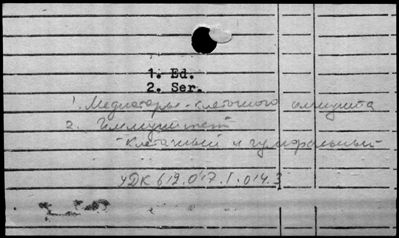 1. Ed.
2. Ser.
1. Медиаторы клеточного иммунитета
2. Иммунитет
- клеточный и гуморальный
УДК 612.017.1.014.3